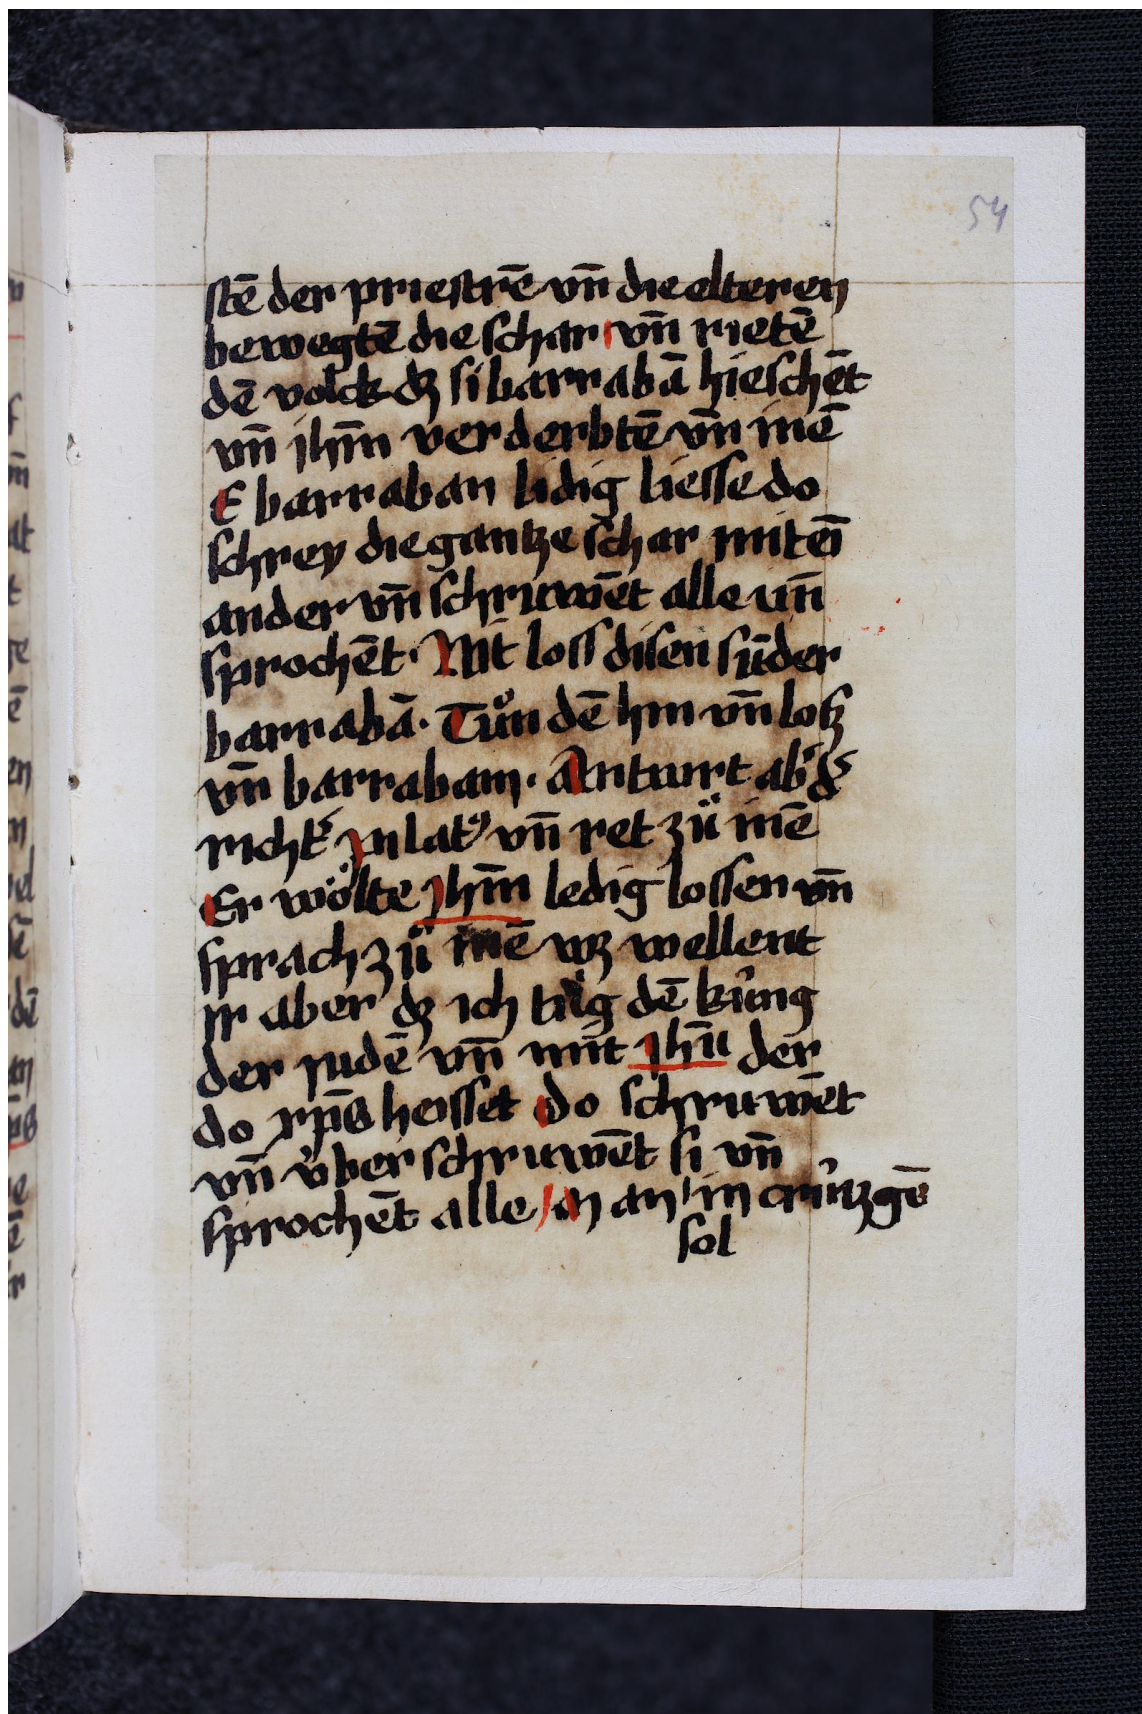 54
stē der priestrē vn̄ die elteren
bewegtē die schar vn̄ rietē
dē volck dz si barrabā hieschēt
vn̄ jhm̄ verderbtē vn̄ inē
E barraban lidig liesse do
schrey die gantze schar mit eī
ander vn̄ schruwēt alle vn̄
sprochēt· Nit loss disen sūder
barrabā· Tuͦn dē hin vn̄ losz
vn̄ barrabam· Antwurt ab̾ d̾
richt̾ pylat⁹ vn̄ ret zuͦ inē
Er woͤlte jhm̄ ledig lossen vn̄
sprach zuͦ inē wz wellent
ir aber dz ich tuͤg dē kúng
der judē vn̄ mit jhū der
do xp̄s heisset do schruwēt
vn̄ v́berschruwēt si vn̄
sprochēt alle an an in crútzgē
sol